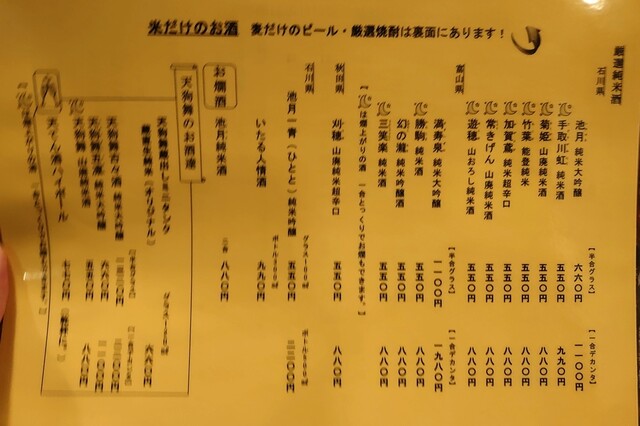 米だけのお酒　麦だけのビール・厳選焼酎は裏面にあります！
厳選純米酒
石川県
【半合グラス】【一合デカンタ】
池月 純米大吟醸 六六〇円 一一〇〇円
手取川 虹 純米酒 五五〇円 九九〇円
菊姫 山廃純米酒 五五〇円 八八〇円
竹葉 能登純米 五五〇円 八八〇円
加賀鳶 純米超辛口 五五〇円 八八〇円
常きげん 山廃純米酒 五五〇円 八八〇円
遊穂 山おろし純米酒 五五〇円 八八〇円
富山県
【半合グラス】【一合デカンタ】
満寿泉 純米大吟醸 一一〇〇円 一九八〇円
勝駒 純米吟醸 五五〇円 八八〇円
幻の瀧 純米吟醸酒 五五〇円 八八〇円
三笑楽 純米酒 五五〇円 八八〇円
【は燗上がりの酒　一合とっくりでお燗もできます。】
秋田県
刈穂 山廃純米超辛口 五五〇円 八八〇円
石川県
グラス100ml ボトル500ml
池月一青（ひとと）純米吟醸 五五〇円 二二〇〇円
ボトル300ml
いたる人情酒 九九〇円
お燗酒
二合
池月純米酒 八八〇円
天狗舞のお酒達
グラス120ml
天狗舞蔵出しミニタンク 六六〇円
（オリジナル）
天狗舞 純米大吟醸
天狗舞 純米大吟醸
天狗舞 山廃純米酒 五五〇円 八八〇円
ハイボール 七七〇円